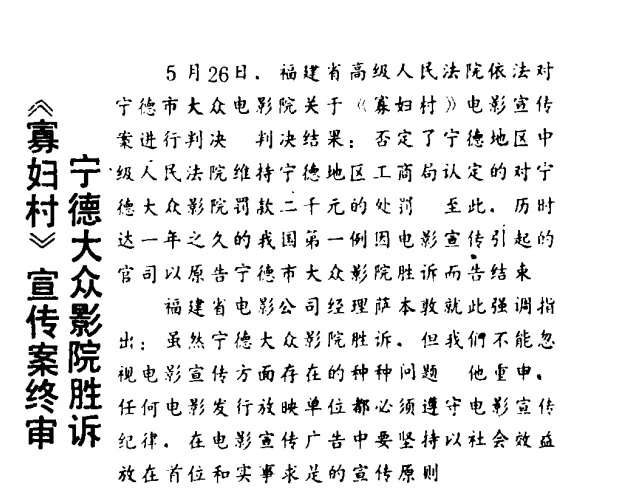 《寡妇村》宣传案终审
宁德大众影院胜诉
5月26日，福建省高级人民法院依法对
宁德市大众电影院关于《寡妇村》电影宣传
案进行判决 判决结果：否定了宁德地区中
级人民法院维持宁德地区工商局认定的对宁
德大众影院罚款二千元的处罚 至此，历时
达一年之久的我国第一例因电影宣传引起的
官司以原告宁德市大众影院胜诉而告结束
福建省电影公司经理萨本敦就此强调指
出：虽然宁德大众影院胜诉，但我们不能忽
视电影宣传方面存在的种种问题 他重申，
任何电影发行放映单位都必须遵守电影宣传
纪律，在电影宣传广告中要坚持以社会效益
放在首位和实事求是的宣传原则